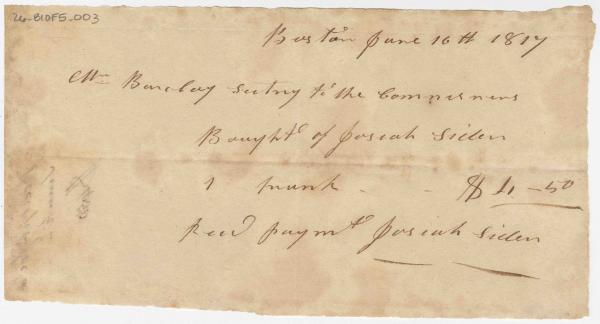 26-B10F5-003
Boston June 16th 1817
Mr Barclay Sectry to the Commisners
Bought of Josiah Siden
1 trunk - - $ 4-50
Recd paymt Josiah Siden